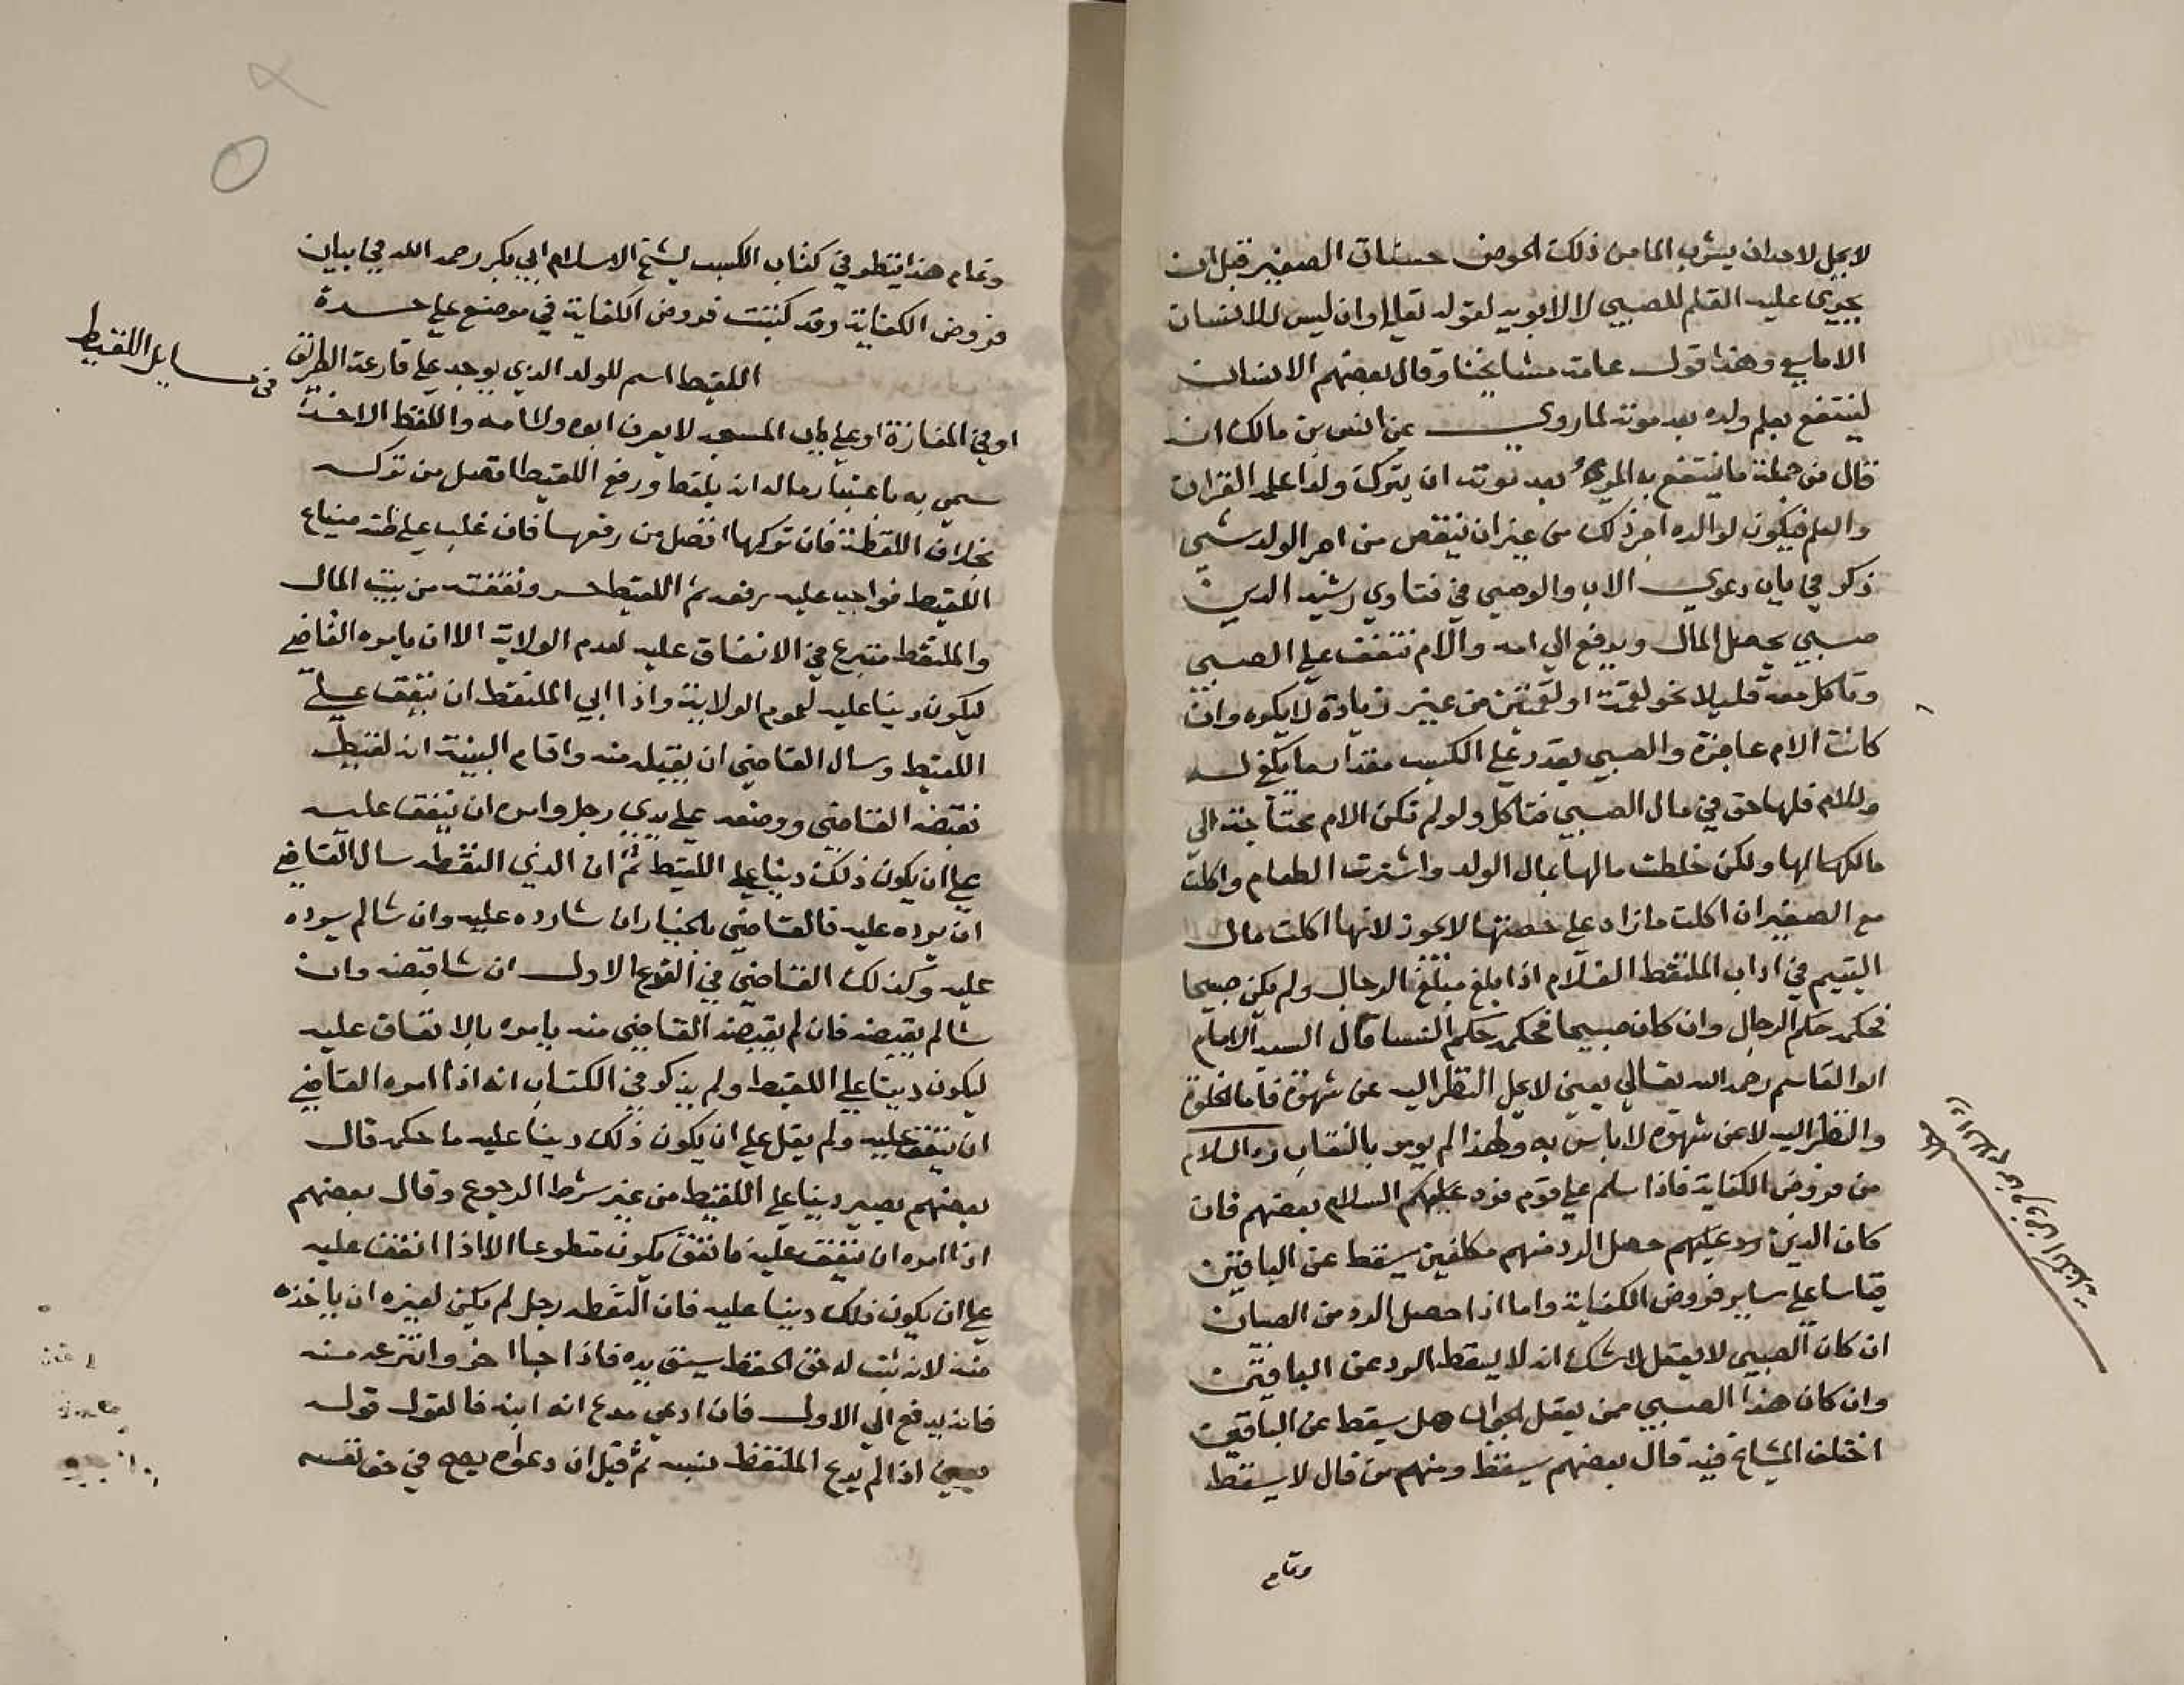 لا يحل لاحد ان يشرب الما من ذلك الحوض حسنات الصغير قبل ان
يجري عليه القلم للصبي لا لابويه لقوله تعالى وان ليس للانسان
الا ما سعى وهذا قول عامة مشايخنا وقال بعضهم الانسان
لينتفع بعلم ولده بعد موته لما روي عن انس بن مالك انه
قال من جملة ما ينتفع به المرء بعد موته ان يترك ولدا علمه القران
والعلم فيكون لوالده اجر ذلك من غير ان ينقص من اجر الولد شي
ذكر في باب دعوى الاب والوصي في فتاوي رشيد الدين
صبي يحصل المال ويدفع الى امه والام تنفق على الصبي
وتاكل معه قليلا نحو لقمة او لقمتين من غير زيادة لا يكره وان
كانت الام عاجزة والصبي يقدر على الكسب مقدار ما يكفي له
وللام فلها حق في مال الصبي فتاكل ولو لم تكن الام محتاجة الى
مالكها لها ولكن خلطت مالها بمال الولد واشترت الطعام واكلت
مع الصغير ان اكلت ما زاد على حصتها لا يجوز لانها اكلت مال
اليتيم في اداب الملتقط الغلام اذا بلغ مبلغ الرجال ولم يكن صبيحا
فحكمه حكم الرجال وان كان صبيحا فحكمه حكم النسا قال السيد الامام
ابو القاسم رحمه الله تعالى يعني لا يحل النظر اليه عن شهوة فاما الخلوة
والنظر اليه لا عن شهوة لا باس به ولهذا لم يومر بالنقاب رد السلام
من فروض الكفاية فاذا سلم على قوم فرد عليهم السلام بعضهم فان
كان الذين رد عليهم حصل الرد منهم مكلفين يسقط عن الباقين
قياسا على ساير فروض الكفاية واما اذا حصل الرد من الصبيان
ان كان الصبي لا يعقل لا شك انه لا يسقط الرد عن الباقين
وان كان هذا الصبي ممن يعقل الجواب هل يسقط عن الباقين
اختلف المشايخ فيه قال بعضهم يسقط ومنهم من قال لا يسقط
وتمام
رد السلام من فروض الكفاية
وتمام هذا ينظر في كتاب الكسب لشيخ الاسلام ابي بكر رحمه الله في بيان
فروض الكفاية وقد كتبت فروض الكفاية في موضع على حدة
اللقيط اسم للولد الذي يوجد على قارعة الطريق
في مسايل اللقيط
او في المفازة او على باب المسجد لا يعرف ابوه ولا امه واللقط الاخذ
سمي به باعتبار ماله انه يلقط ورفع اللقيط افضل من تركه
بخلاف اللقطة فان تركها افضل من رفعها فان غلب على ظنه ضياع
اللقيط فواجب عليه رفعه ثم اللقيط حر ونفقته من بيت المال
والملتقط متبرع في الانفاق عليه لعدم الولاية الا ان يامره القاضي
ليكون دينا عليه لعموم الولاية واذا ابى الملتقط ان ينفق على
اللقيط وسال القاضي ان يقبله منه واقام البينة انه لقيط
نقبضه القاضي ووضعه على يدي رجل وامره ان ينفق عليه
على ان يكون ذلك دينا على اللقيط ثم ان الذي التقطه سال القاضي
ان يرده عليه فالقاضي بالخيار ان شا رده عليه وان شا لم يرده
عليه وكذلك القاضي في الفرع الاول ان شا قبضه وان
شا لم يقبضه فان لم يقبضه القاضي منه يامره بالانفاق عليه
ليكون دينا على اللقيط ولم يذكر في الكتاب انه اذا امره القاضي
ان ينفق عليه ولم يقل على ان يكون ذلك دينا عليه ما حكمه قال
بعضهم يصير دينا على اللقيط من غير شرط الرجوع وقال بعضهم
اذا امره ان ينفق عليه فانفق يكون متطوعا الا اذا انفق عليه
على ان يكون ذلك دينا عليه فان التقطه رجل لم يكن لغيره ان ياخذه
منه لانه ثبت له حق الحفظ بسبق يده فاذا جا اخر وانتزعه منه
فانه يدفع الى الاول فان ادعى مدع انه ابنه فالقول قوله
يعني اذا لم يدع الملتقط نسبه ثم قيل ان دعواه يصح في حق نفسه